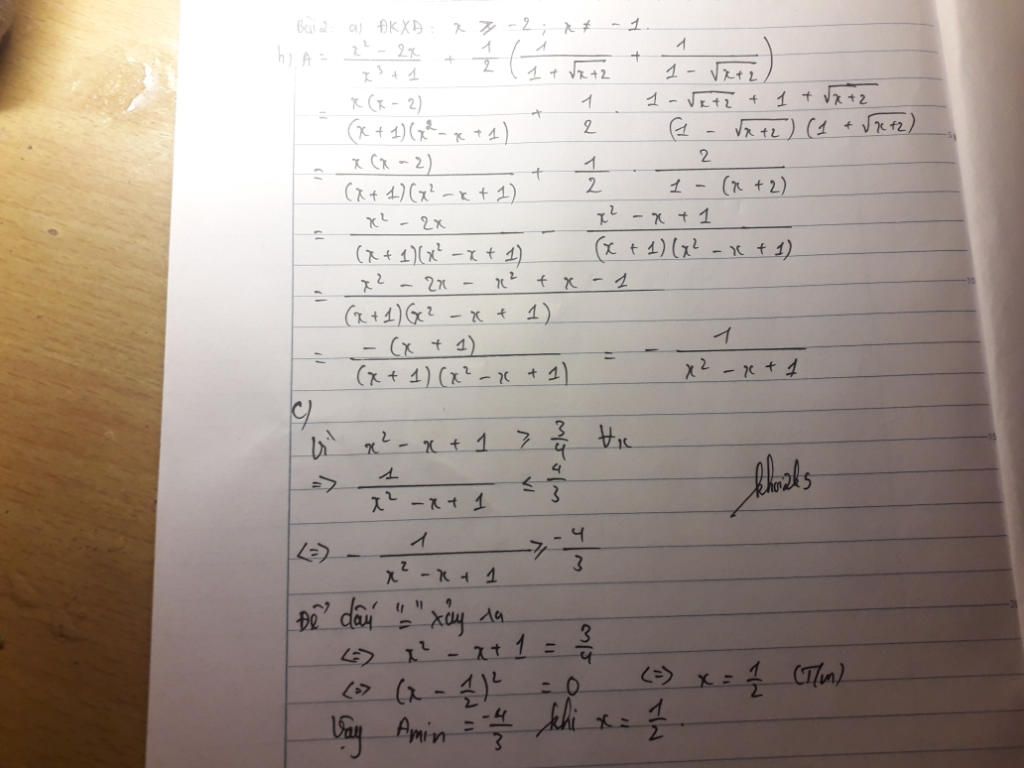 Bài 2: a) ĐKXĐ: x ⩾ -2 ; x ≠ -1.
b) A = (x² - 2x)/(x³ + 1) + 1/2 (1/(1 + √(x+2)) + 1/(1 - √(x+2)))
= x(x - 2)/((x + 1)(x² - x + 1)) + 1/2 . (1 - √(x+2) + 1 + √(x+2))/((1 - √(x+2))(1 + √(x+2)))
= x(x - 2)/((x + 1)(x² - x + 1)) + 1/2 . 2/(1 - (x + 2))
= (x² - 2x)/((x + 1)(x² - x + 1)) - (x² - x + 1)/((x + 1)(x² - x + 1))
= (x² - 2x - x² + x - 1)/((x + 1)(x² - x + 1))
= -(x + 1)/((x + 1)(x² - x + 1)) = - 1/(x² - x + 1)
c)
Vì x² - x + 1 ⩾ 3/4 ∀x
=> 1/(x² - x + 1) ≤ 4/3
khoi2k5
<=> - 1/(x² - x + 1) ⩾ -4/3
Để dấu "=" xảy ra
<=> x² - x + 1 = 3/4
<=> (x - 1/2)² = 0 <=> x = 1/2 (T/m)
Vậy Amin = -4/3 khi x = 1/2.